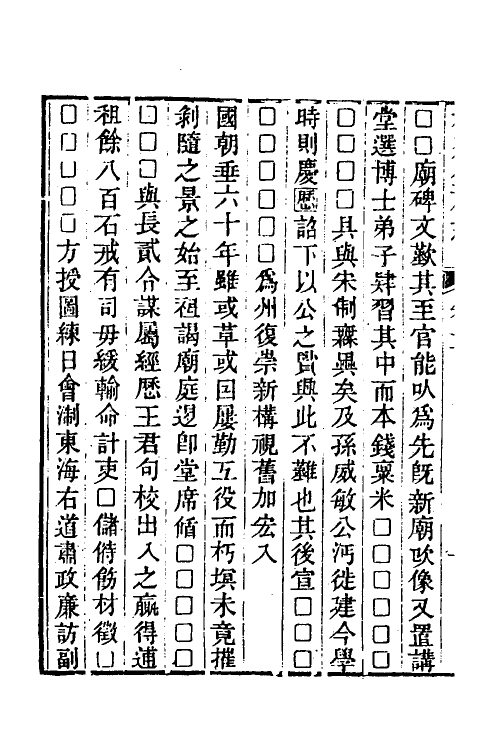 □□廟碑文歎其至官能以爲先旣新廟改像又置講
堂選博士弟子肄習其中而本錢稟米□□□□□□
□□□□具與宋制驟異矣及孫威敏公沔徙建今學
時則慶曆詔下以公之賢與此不難也其後宣□□□
□□□□□□爲州復崇新構視舊加宏入
國朝垂六十年雖或革或因屢勤工役而朽墁未竟摧
剥隨之景之始至祖謁廟庭退卽堂席脩□□□□□
□□□與長貳合謀屬經歷王君句校出入之贏得逋
租餘八百石戒有司毋緩輸命計吏□儲偫飭材徵□
□□□□□方授圖練日會淛東海右道肅政廉訪副